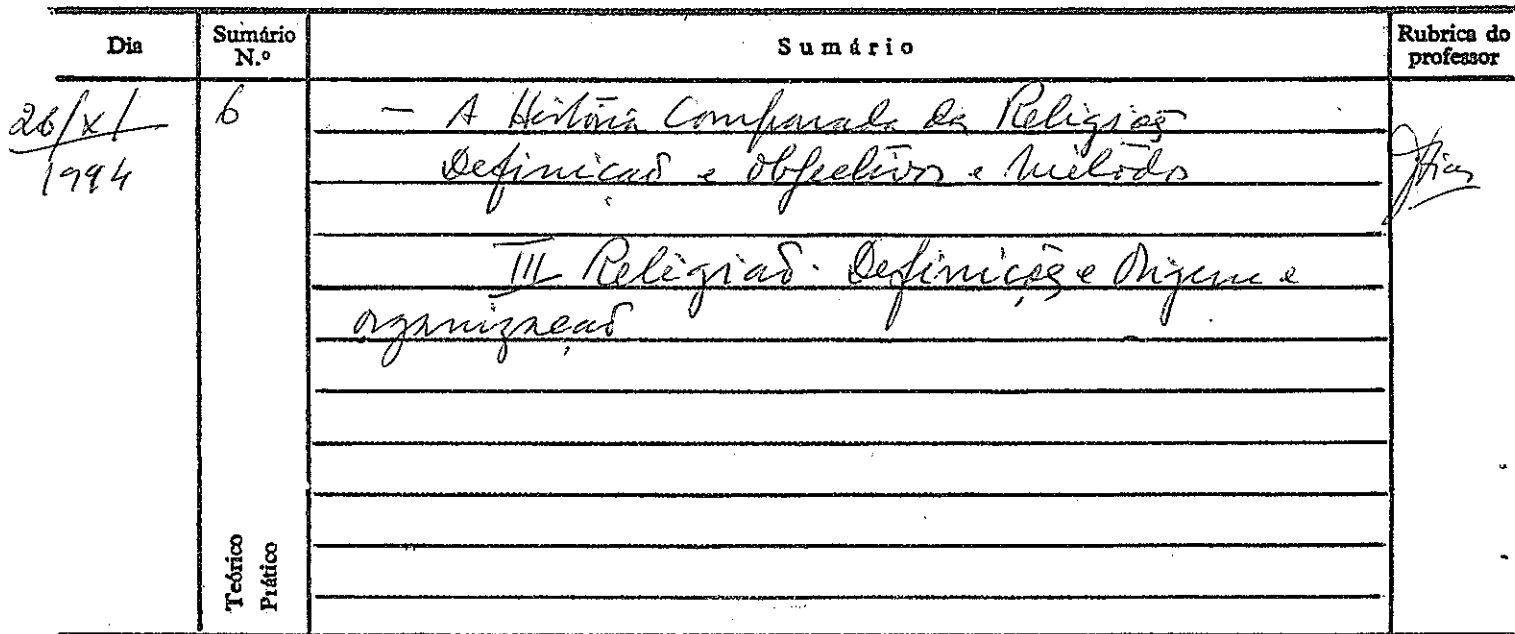 Dia Sumário N.º Sumário Rubrica do professor
26/XI/ 6 – A História Comparada das Religiões
1994 Definição e Objectivos e Método
III Religião. Definições e Origem e
organização
Teórico
Prático